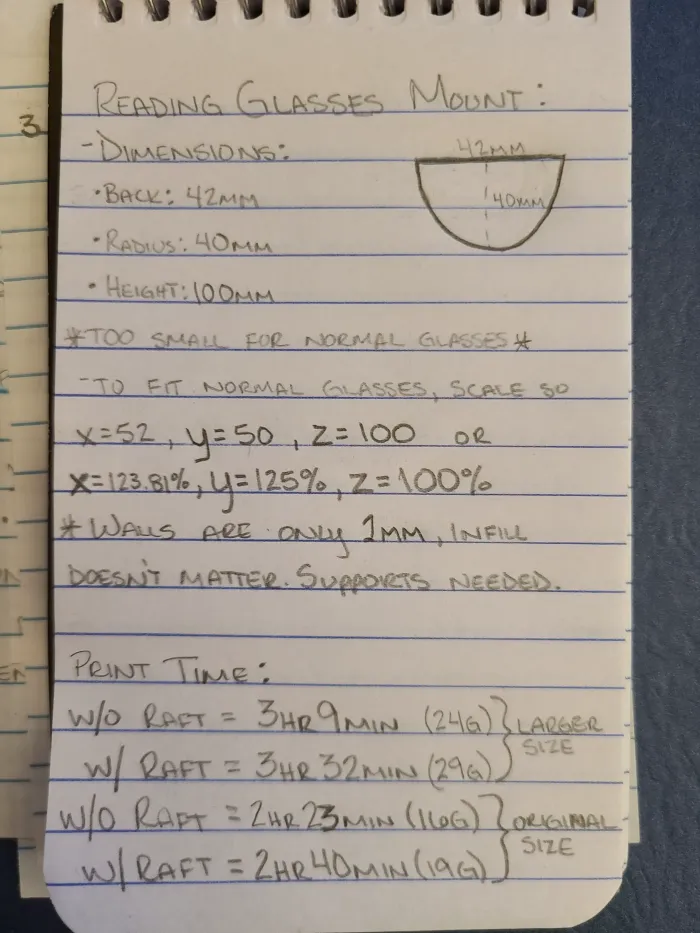 READING GLASSES MOUNT:
3
-DIMENSIONS:
42MM
•BACK: 42MM
40MM
•RADIUS: 40MM
•HEIGHT: 100MM
*TOO SMALL FOR NORMAL GLASSES*
-TO FIT NORMAL GLASSES, SCALE SO
X=52, Y=50, Z=100 OR
X=123.81%, Y=125%, Z=100%
*WALLS ARE ONLY 2MM, INFILL
DOESN'T MATTER. SUPPORTS NEEDED.
PRINT TIME:
W/O RAFT = 3HR 9MIN (24G) } LARGER
SIZE
W/ RAFT = 3HR 32MIN (29G)
W/O RAFT = 2HR 23MIN (16G) } ORIGINAL
SIZE
W/ RAFT = 2HR 40MIN (19G)